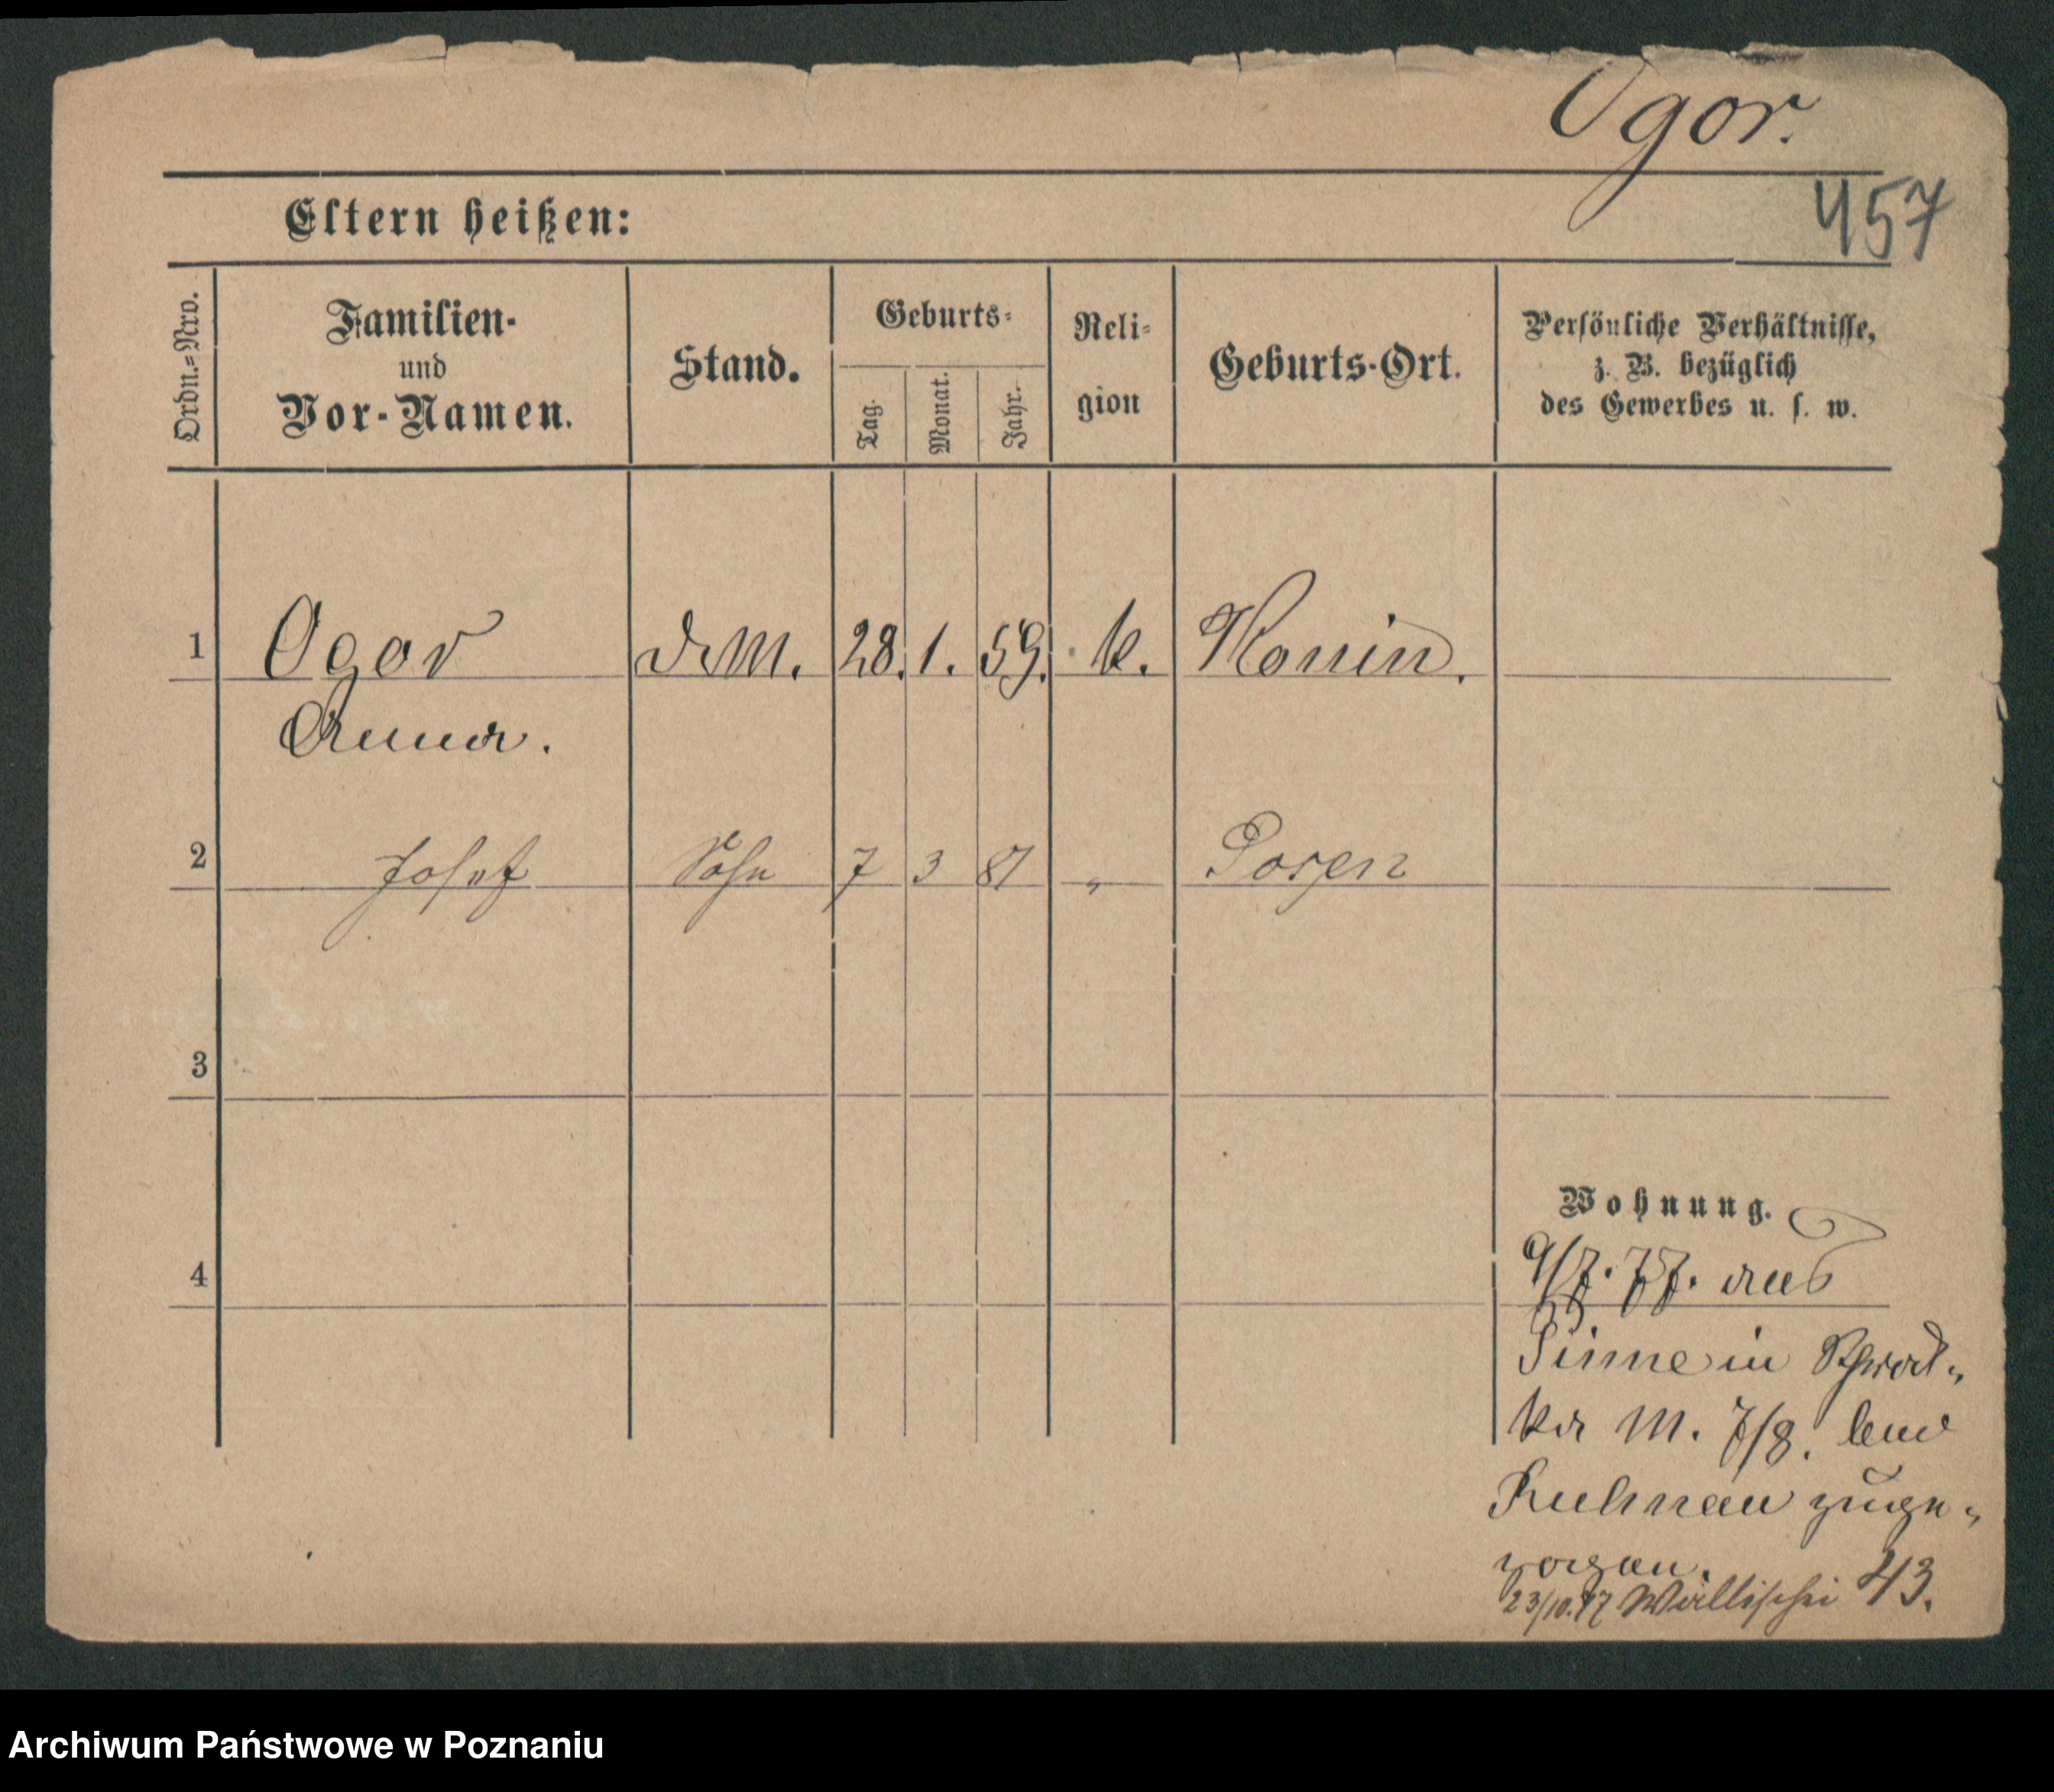 Ogor.
457
Eltern heißen:
Ordn.=Nro.
Familien-
und
Vor-Namen.
Stand.
Geburts=
Tag.
Monat.
Jahr.
Reli=
gion
Geburts-Ort.
Persönliche Verhältnisse,
z. B. bezüglich
des Gewerbes u. s. w.
1 Ogor d. M. 28. 1. 59. k. Konin.
Anna.
2 Josef Sohn 7 3 81 " Posen
3
Wohnung.
4
9/7. 77. aus
Pinne in
ka M. 7/8. bei
Kuhnau zuge=
zogen.
23/10.77 Wallischei 43.
Archiwum Państwowe w Poznaniu